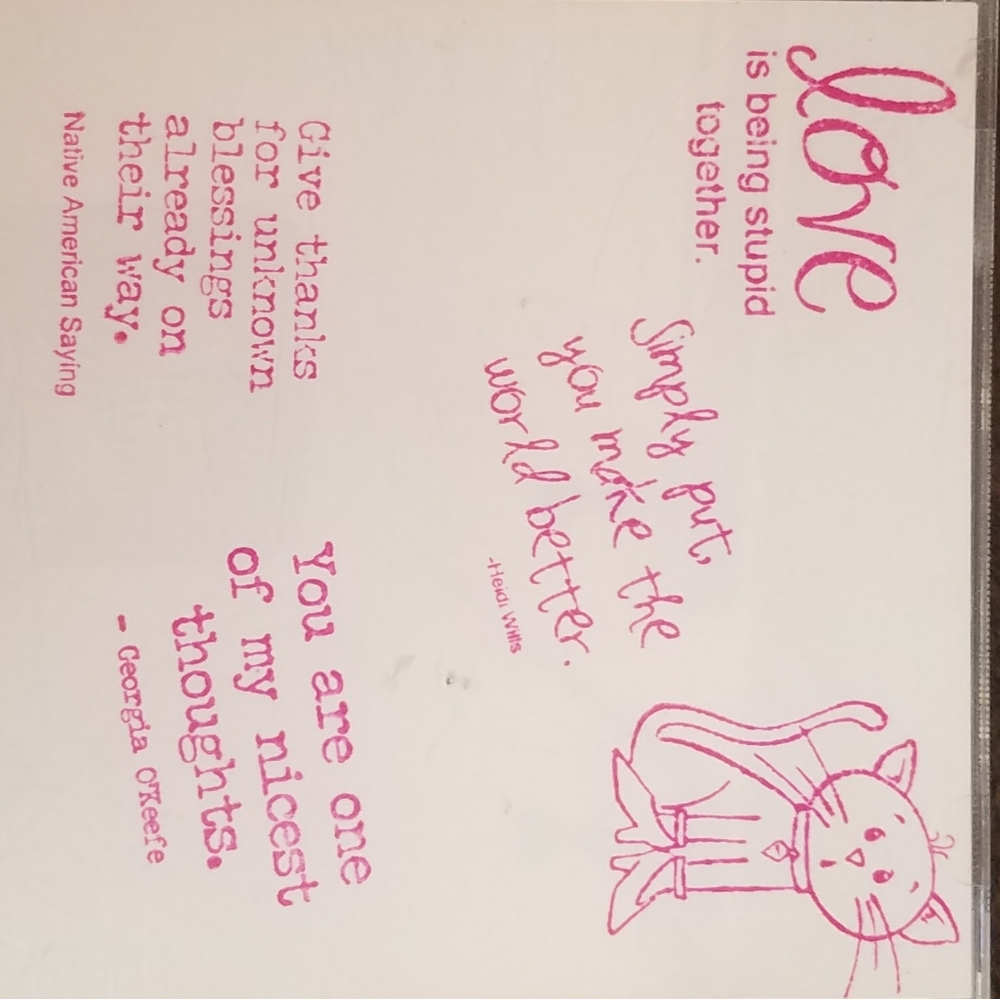 love
is being stupid
together.
Simply put,
you make the
world better.
-Heidi Wills
Give thanks
for unknown
blessings
already on
their way.
Native American Saying
You are one
of my nicest
thoughts.
- Georgia O'Keefe